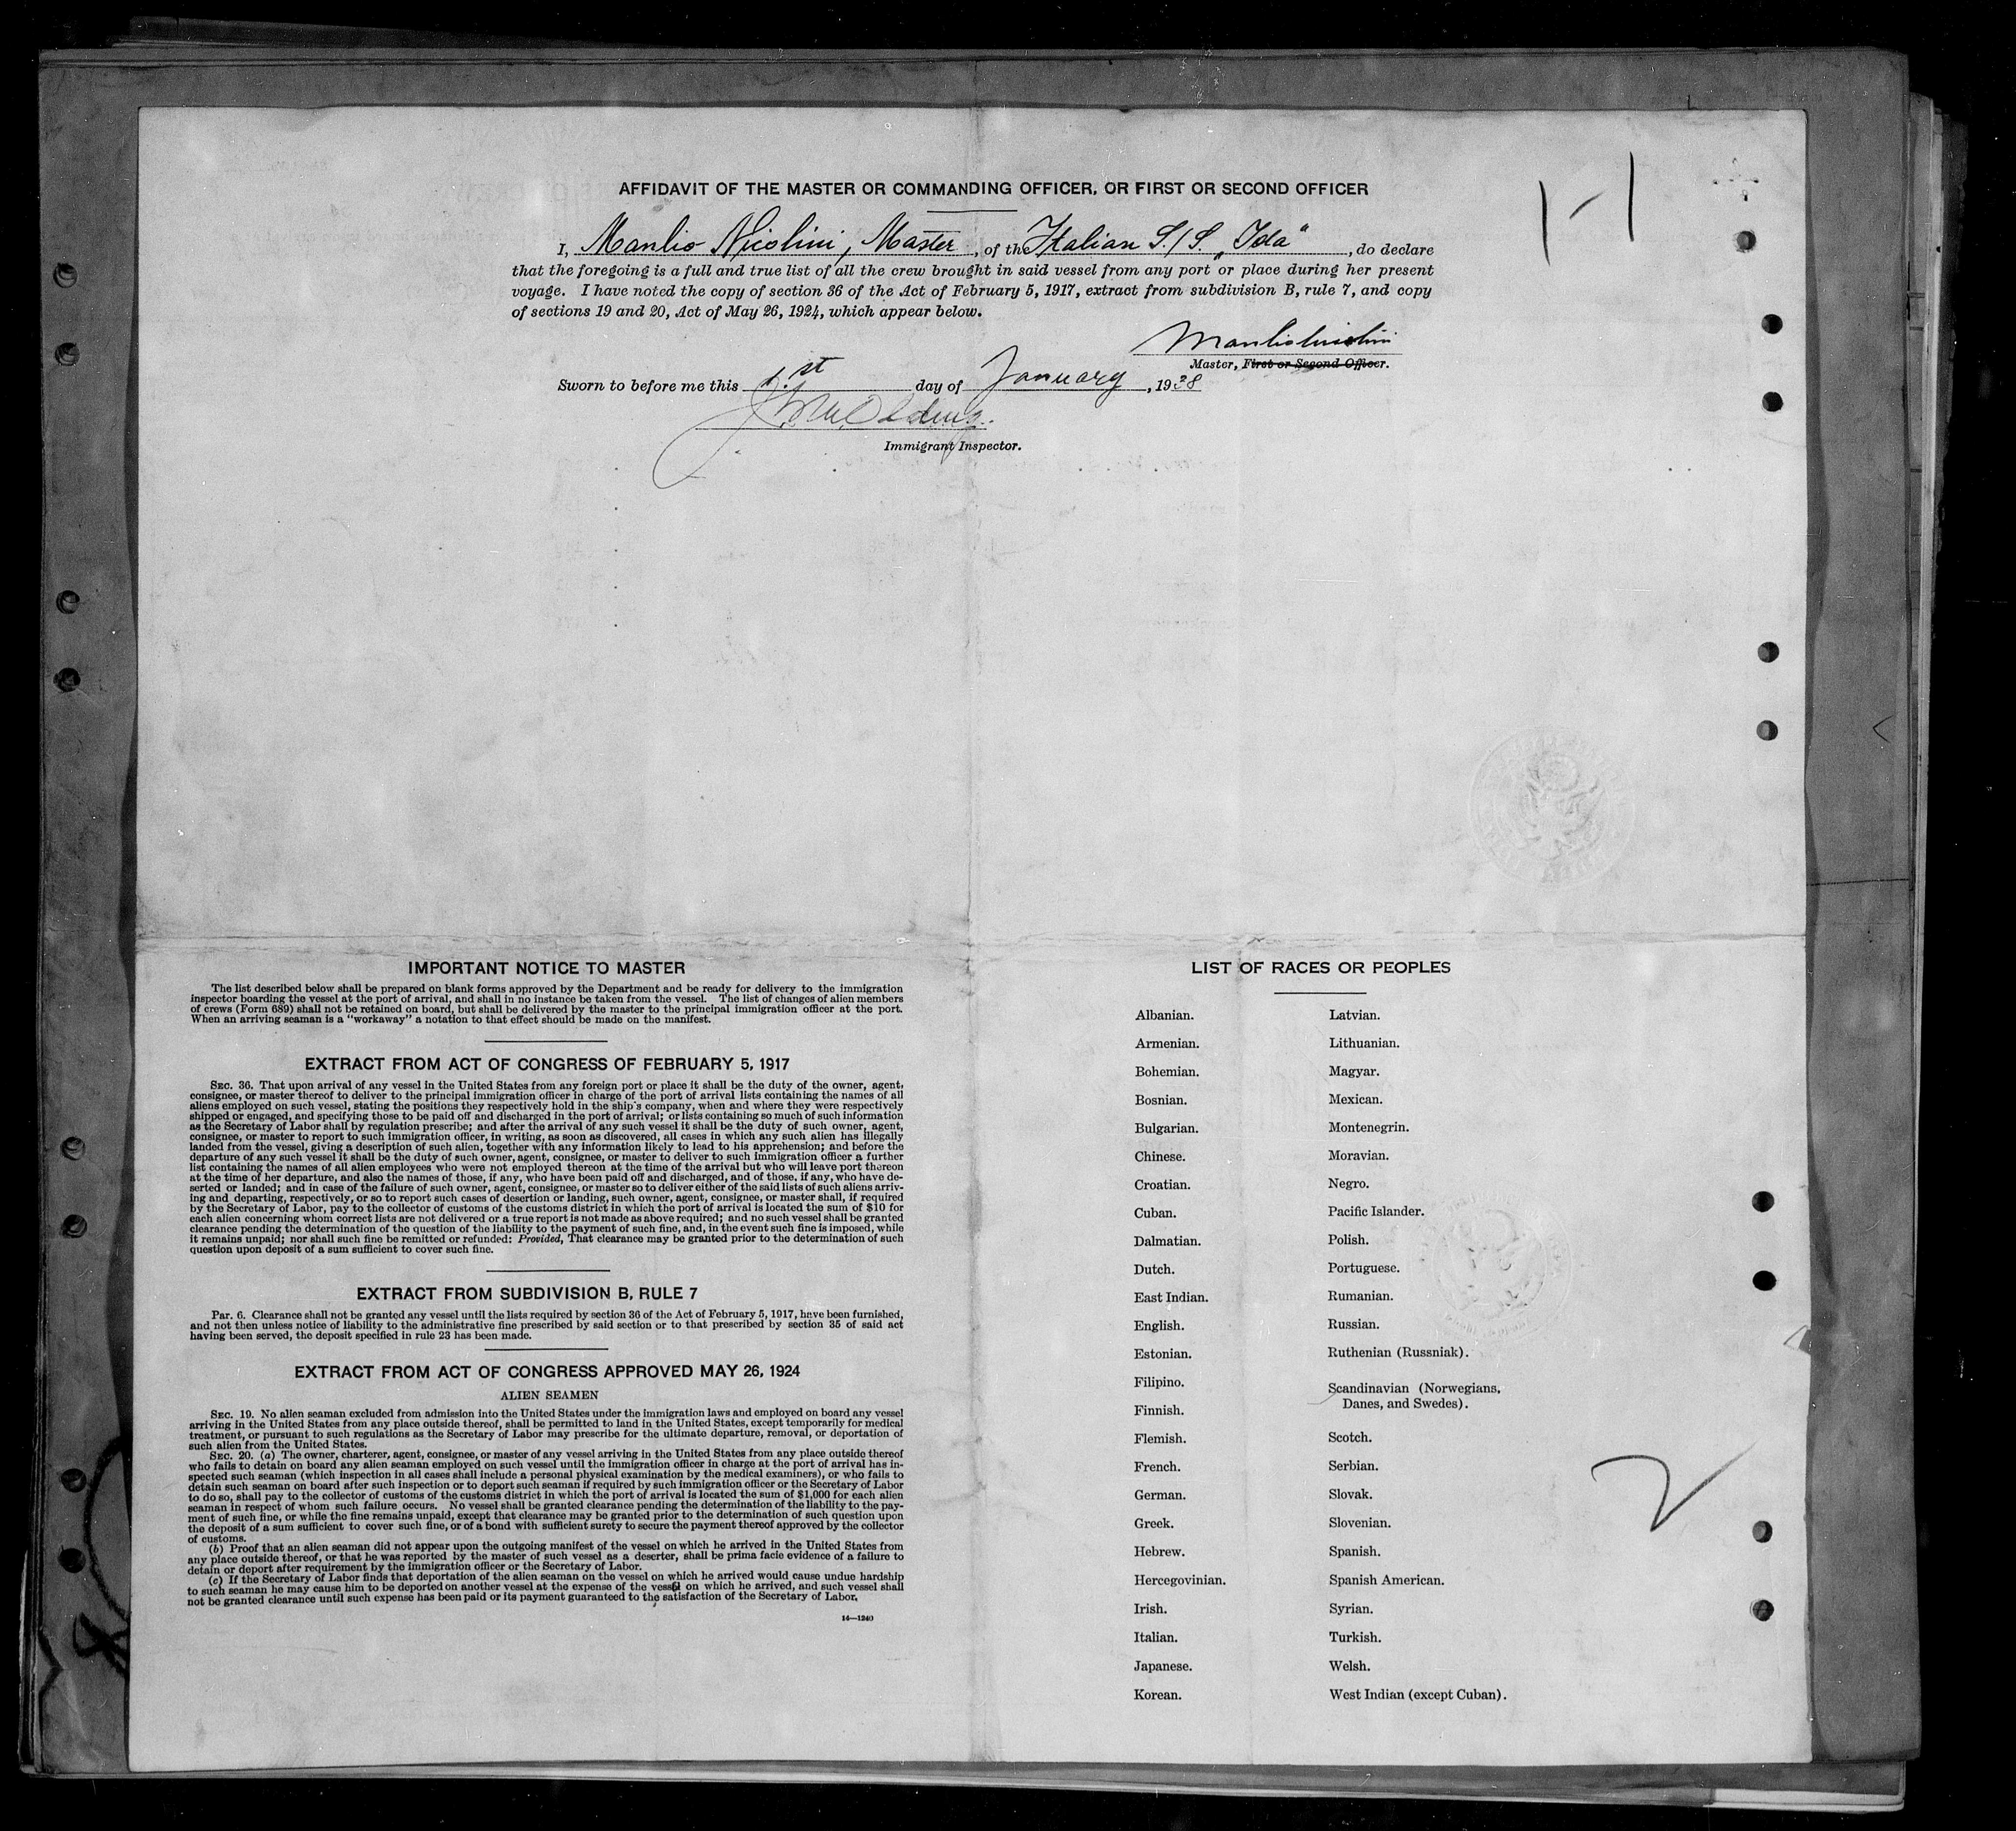 1-1
AFFIDAVIT OF THE MASTER OR COMMANDING OFFICER, OR FIRST OR SECOND OFFICER
I, Manlio Nicolini, Master, of the Italian S/S. „Ida", do declare
that the foregoing is a full and true list of all the crew brought in said vessel from any port or place during her present
voyage. I have noted the copy of section 36 of the Act of February 5, 1917, extract from subdivision B, rule 7, and copy
of sections 19 and 20, Act of May 26, 1924, which appear below.
Manlio Nicolini
Master, First or Second Officer.
Sworn to before me this 1.st day of January, 1938
Immigrant Inspector.
IMPORTANT NOTICE TO MASTER
The list described below shall be prepared on blank forms approved by the Department and be ready for delivery to the immigration
inspector boarding the vessel at the port of arrival, and shall in no instance be taken from the vessel. The list of changes of alien members
of crews (Form 689) shall not be retained on board, but shall be delivered by the master to the principal immigration officer at the port.
When an arriving seaman is a "workaway" a notation to that effect should be made on the manifest.
EXTRACT FROM ACT OF CONGRESS OF FEBRUARY 5, 1917
SEC. 36. That upon arrival of any vessel in the United States from any foreign port or place it shall be the duty of the owner, agent,
consignee, or master thereof to deliver to the principal immigration officer in charge of the port of arrival lists containing the names of all
aliens employed on such vessel, stating the positions they respectively hold in the ship's company, when and where they were respectively
shipped or engaged, and specifying those to be paid off and discharged in the port of arrival; or lists containing so much of such information
as the Secretary of Labor shall by regulation prescribe; and after the arrival of any such vessel it shall be the duty of such owner, agent,
consignee, or master to report to such immigration officer, in writing, as soon as discovered, all cases in which any such alien has illegally
landed from the vessel, giving a description of such alien, together with any information likely to lead to his apprehension; and before the
departure of any such vessel it shall be the duty of such owner, agent, consignee, or master to deliver to such immigration officer a further
list containing the names of all alien employees who were not employed thereon at the time of the arrival but who will leave port thereon
at the time of her departure, and also the names of those, if any, who have been paid off and discharged, and of those, if any, who have de-
serted or landed; and in case of the failure of such owner, agent, consignee, or master so to deliver either of the said lists of such aliens arriv-
ing and departing, respectively, or so to report such cases of desertion or landing, such owner, agent, consignee, or master shall, if required
by the Secretary of Labor, pay to the collector of customs of the customs district in which the port of arrival is located the sum of $10 for
each alien concerning whom correct lists are not delivered or a true report is not made as above required; and no such vessel shall be granted
clearance pending the determination of the question of the liability to the payment of such fine, and, in the event such fine is imposed, while
it remains unpaid; nor shall such fine be remitted or refunded: Provided, That clearance may be granted prior to the determination of such
question upon deposit of a sum sufficient to cover such fine.
EXTRACT FROM SUBDIVISION B, RULE 7
PAR. 6. Clearance shall not be granted any vessel until the lists required by section 36 of the Act of February 5, 1917, have been furnished,
and not then unless notice of liability to the administrative fine prescribed by said section or to that prescribed by section 35 of said act
having been served, the deposit specified in rule 23 has been made.
EXTRACT FROM ACT OF CONGRESS APPROVED MAY 26, 1924
ALIEN SEAMEN
SEC. 19. No alien seaman excluded from admission into the United States under the immigration laws and employed on board any vessel
arriving in the United States from any place outside thereof, shall be permitted to land in the United States, except temporarily for medical
treatment, or pursuant to such regulations as the Secretary of Labor may prescribe for the ultimate departure, removal, or deportation of
such alien from the United States.
SEC. 20. (a) The owner, charterer, agent, consignee, or master of any vessel arriving in the United States from any place outside thereof
who fails to detain on board any alien seaman employed on such vessel until the immigration officer in charge at the port of arrival has in-
spected such seaman (which inspection in all cases shall include a personal physical examination by the medical examiners), or who fails to
detain such seaman on board after such inspection or to deport such seaman if required by such immigration officer or the Secretary of Labor
to do so, shall pay to the collector of customs of the customs district in which the port of arrival is located the sum of $1,000 for each alien
seaman in respect of whom such failure occurs. No vessel shall be granted clearance pending the determination of the liability to the pay-
ment of such fine, or while the fine remains unpaid, except that clearance may be granted prior to the determination of such question upon
the deposit of a sum sufficient to cover such fine, or of a bond with sufficient surety to secure the payment thereof approved by the collector
of customs.
(b) Proof that an alien seaman did not appear upon the outgoing manifest of the vessel on which he arrived in the United States from
any place outside thereof, or that he was reported by the master of such vessel as a deserter, shall be prima facie evidence of a failure to
detain or deport after requirement by the immigration officer or the Secretary of Labor.
(c) If the Secretary of Labor finds that deportation of the alien seaman on the vessel on which he arrived would cause undue hardship
to such seaman he may cause him to be deported on another vessel at the expense of the vessel on which he arrived, and such vessel shall
not be granted clearance until such expense has been paid or its payment guaranteed to the satisfaction of the Secretary of Labor.
14—1240
LIST OF RACES OR PEOPLES
Albanian.
Armenian.
Bohemian.
Bosnian.
Bulgarian.
Chinese.
Croatian.
Cuban.
Dalmatian.
Dutch.
East Indian.
English.
Estonian.
Filipino.
Finnish.
Flemish.
French.
German.
Greek.
Hebrew.
Hercegovinian.
Irish.
Italian.
Japanese.
Korean.
Latvian.
Lithuanian.
Magyar.
Mexican.
Montenegrin.
Moravian.
Negro.
Pacific Islander.
Polish.
Portuguese.
Rumanian.
Russian.
Ruthenian (Russniak).
Scandinavian (Norwegians,
Danes, and Swedes).
Scotch.
Serbian.
Slovak.
Slovenian.
Spanish.
Spanish American.
Syrian.
Turkish.
Welsh.
West Indian (except Cuban).